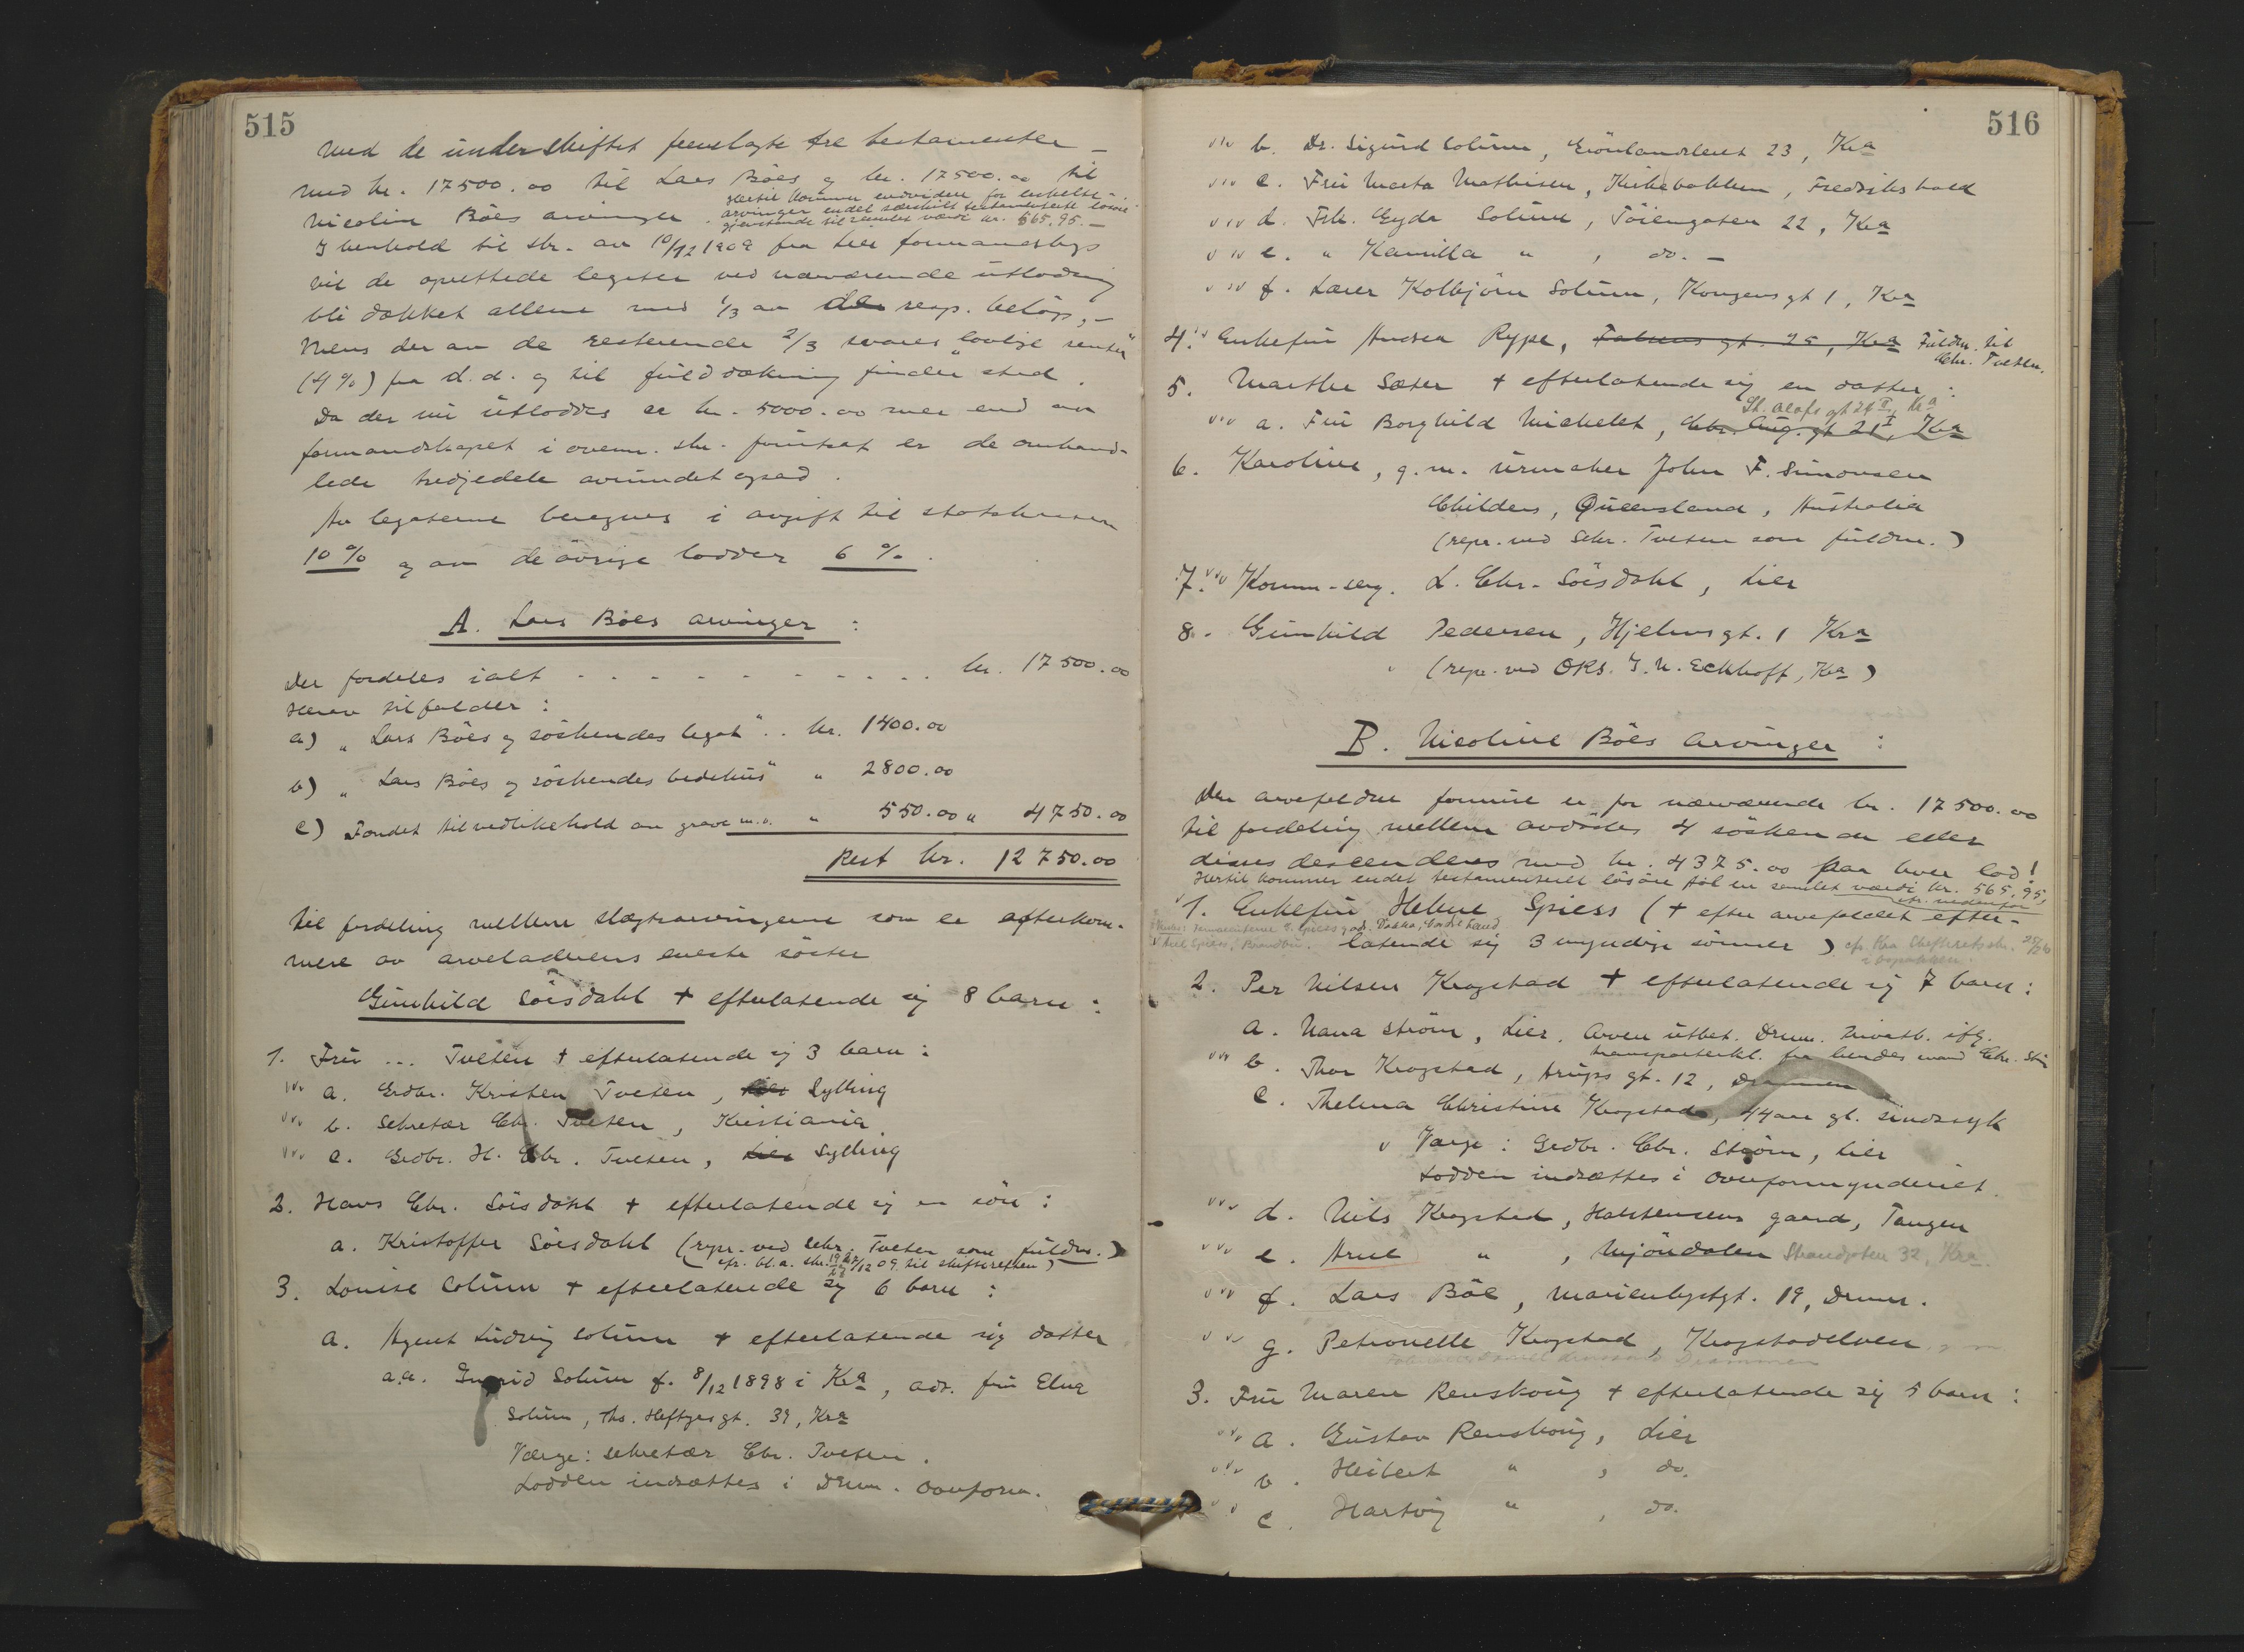 515
med de under skiftet fremlagte tre testamenter –
med kr. 17500.00 til Lars Böes og kr. 17500.00 til
Nicoline Böes arvinger. Hertil kommer endvidere for enkelte
arvinger endel særskilt testamenterte lösöre-
gjenstande til samlet værdi kr. 565,95. –
I henhold til skr. av 10/12 1909 fra Lier formandskap
vil de oprettede legater ved nærværende utlodning
bli dækket allene med 1/3 av de resp. belöp, –
Mens der av de resterende 2/3 svares "lovlige renter"
(4 %) fra d.d. og til fuld dækning finder sted.
Da der nu utloddes er kr. 5000.00 mer end av
formandskapet i ovenn. skr. forutsat er de omhand-
lede tredjedele avrundet opad.
Av legaterne beregnes i avgift til statskassen
10 % og av de övrige lodder 6 %.
A. Lars Böes arvinger :
Der fordeles ialt . . . . . . . . . . . kr. 17500.00
Herav tilfalder :
a) "Lars Böes og söskendes legat" . . kr. 1400.00
b) "Lars Böes og söskendes bedehus" " 2800.00
c) Fondet til vedlikehold av grave m.v. " 550.00 " 4750.00
Rest kr. 12750.00
til fordeling mellem slægtsarvingerne som er efterkom-
mere av arveladerens eneste söster
Gunhild Söisdahl + efterlatende sig 8 barn :
1. Fru ... Tveten + efterlatende sig 3 barn :
a. Grdbr. Kristen Tveten, Lier Sylling
b. Sekretær Chr. Tveten, Kristiania.
c. Grdbr. H. Chr. Tveten, Lier Sylling
2. Hans Chr. Söisdahl + efterlatende sig en sön :
a. Kristoffer Söisdahl (repr. ved sekr. Tveten som fuldm.)
3. Louise Solum + efterlatende sig 6 barn :
a. Agent Ludvig Solum + efterlatende sig datter
a.a. Ingrid Solum f. 8/12 1898 i Kra, adr. fru Elna
Solum, Ths. Heftyes gt. 39, Kra
Værge: sekretær Chr. Tveten.
Lodden indsættes i Drm. overform.
516
b. Dr. Sigurd Solum, Grönlandsleret 23, Kra
c. Fru Marta Mathisen, Kirkebakken, Fredrikshald
d. Frk. Gyda Solum, Töiengaten 22, Kra
e. " Kamilla " , do. –
f. Lærer Kolbjörn Solum, Kongensgt 1, Kra
4. Enkefru Andrea Rype, Falsens gt. 25, Kra Fuldm. til
Chr. Tveten.
5. Marthe Sæter + efterlatende sig en datter :
St. Olafs gt 24 II, Kra
a. Fru Borghild Michelet, Chr. Aug. gt 21 I, Kra
6. Karoline, g.m. urmaker John F. Simonsen
Childers, Queensland, Australia
(repr. ved Sekr. Tveten som fuldm.)
7. Komm-serg. L. Chr. Söisdahl, Lier
8. Gunhild Pedersen, Hjelmsgt. 1 Kra
(repr. ved ORS. I. N. Eckhoff, Kra)
B. Nicoline Böes arvinger :
Den arvefaldne formue er for nærværende kr. 17500.00
til fordeling mellem avdödes 4 sösken av eller
disses descendens med kr. 4375.00 paa hver lod!
Hertil kommer endel testamentert lösöre til en samlet værdi kr. 565,95,
cfr. nedenfor
1. Enkefru Helene Spiess (+ efter arvefaldet efter-
latende sig 3 myndige sönner)
2. Per Nilsen Krogstad + efterlatende sig 7 barn :
a. Nana Ström, Lier. Arven utbet. Drm. Privatb. iflg.
transporterkl. fra hendes mand Chr. Ström
b. Thor Krogstad, Arups gt. 12, Drammen
c. Thelma Christine Krogstad, 44 aar gl. sindssyk
Værge : Grdbr. Chr. Ström, Lier
Lodden indsættes i overformynderiet.
d. Nils Krogstad, Halstensens gaard, Tangen
e. Arne " , Mjöndalen Strandgaten 32, Kra.
f. Lars Böe, Marienlystgt. 19, Drmn.
g. Petronelle Krogstad, Krogstadelven
3. Fru Maren Renskoug + efterlatende sig 5 barn :
a. Gustav Renskoug, Lier
b. Helbert " , do.
c. Hartvig " , do.